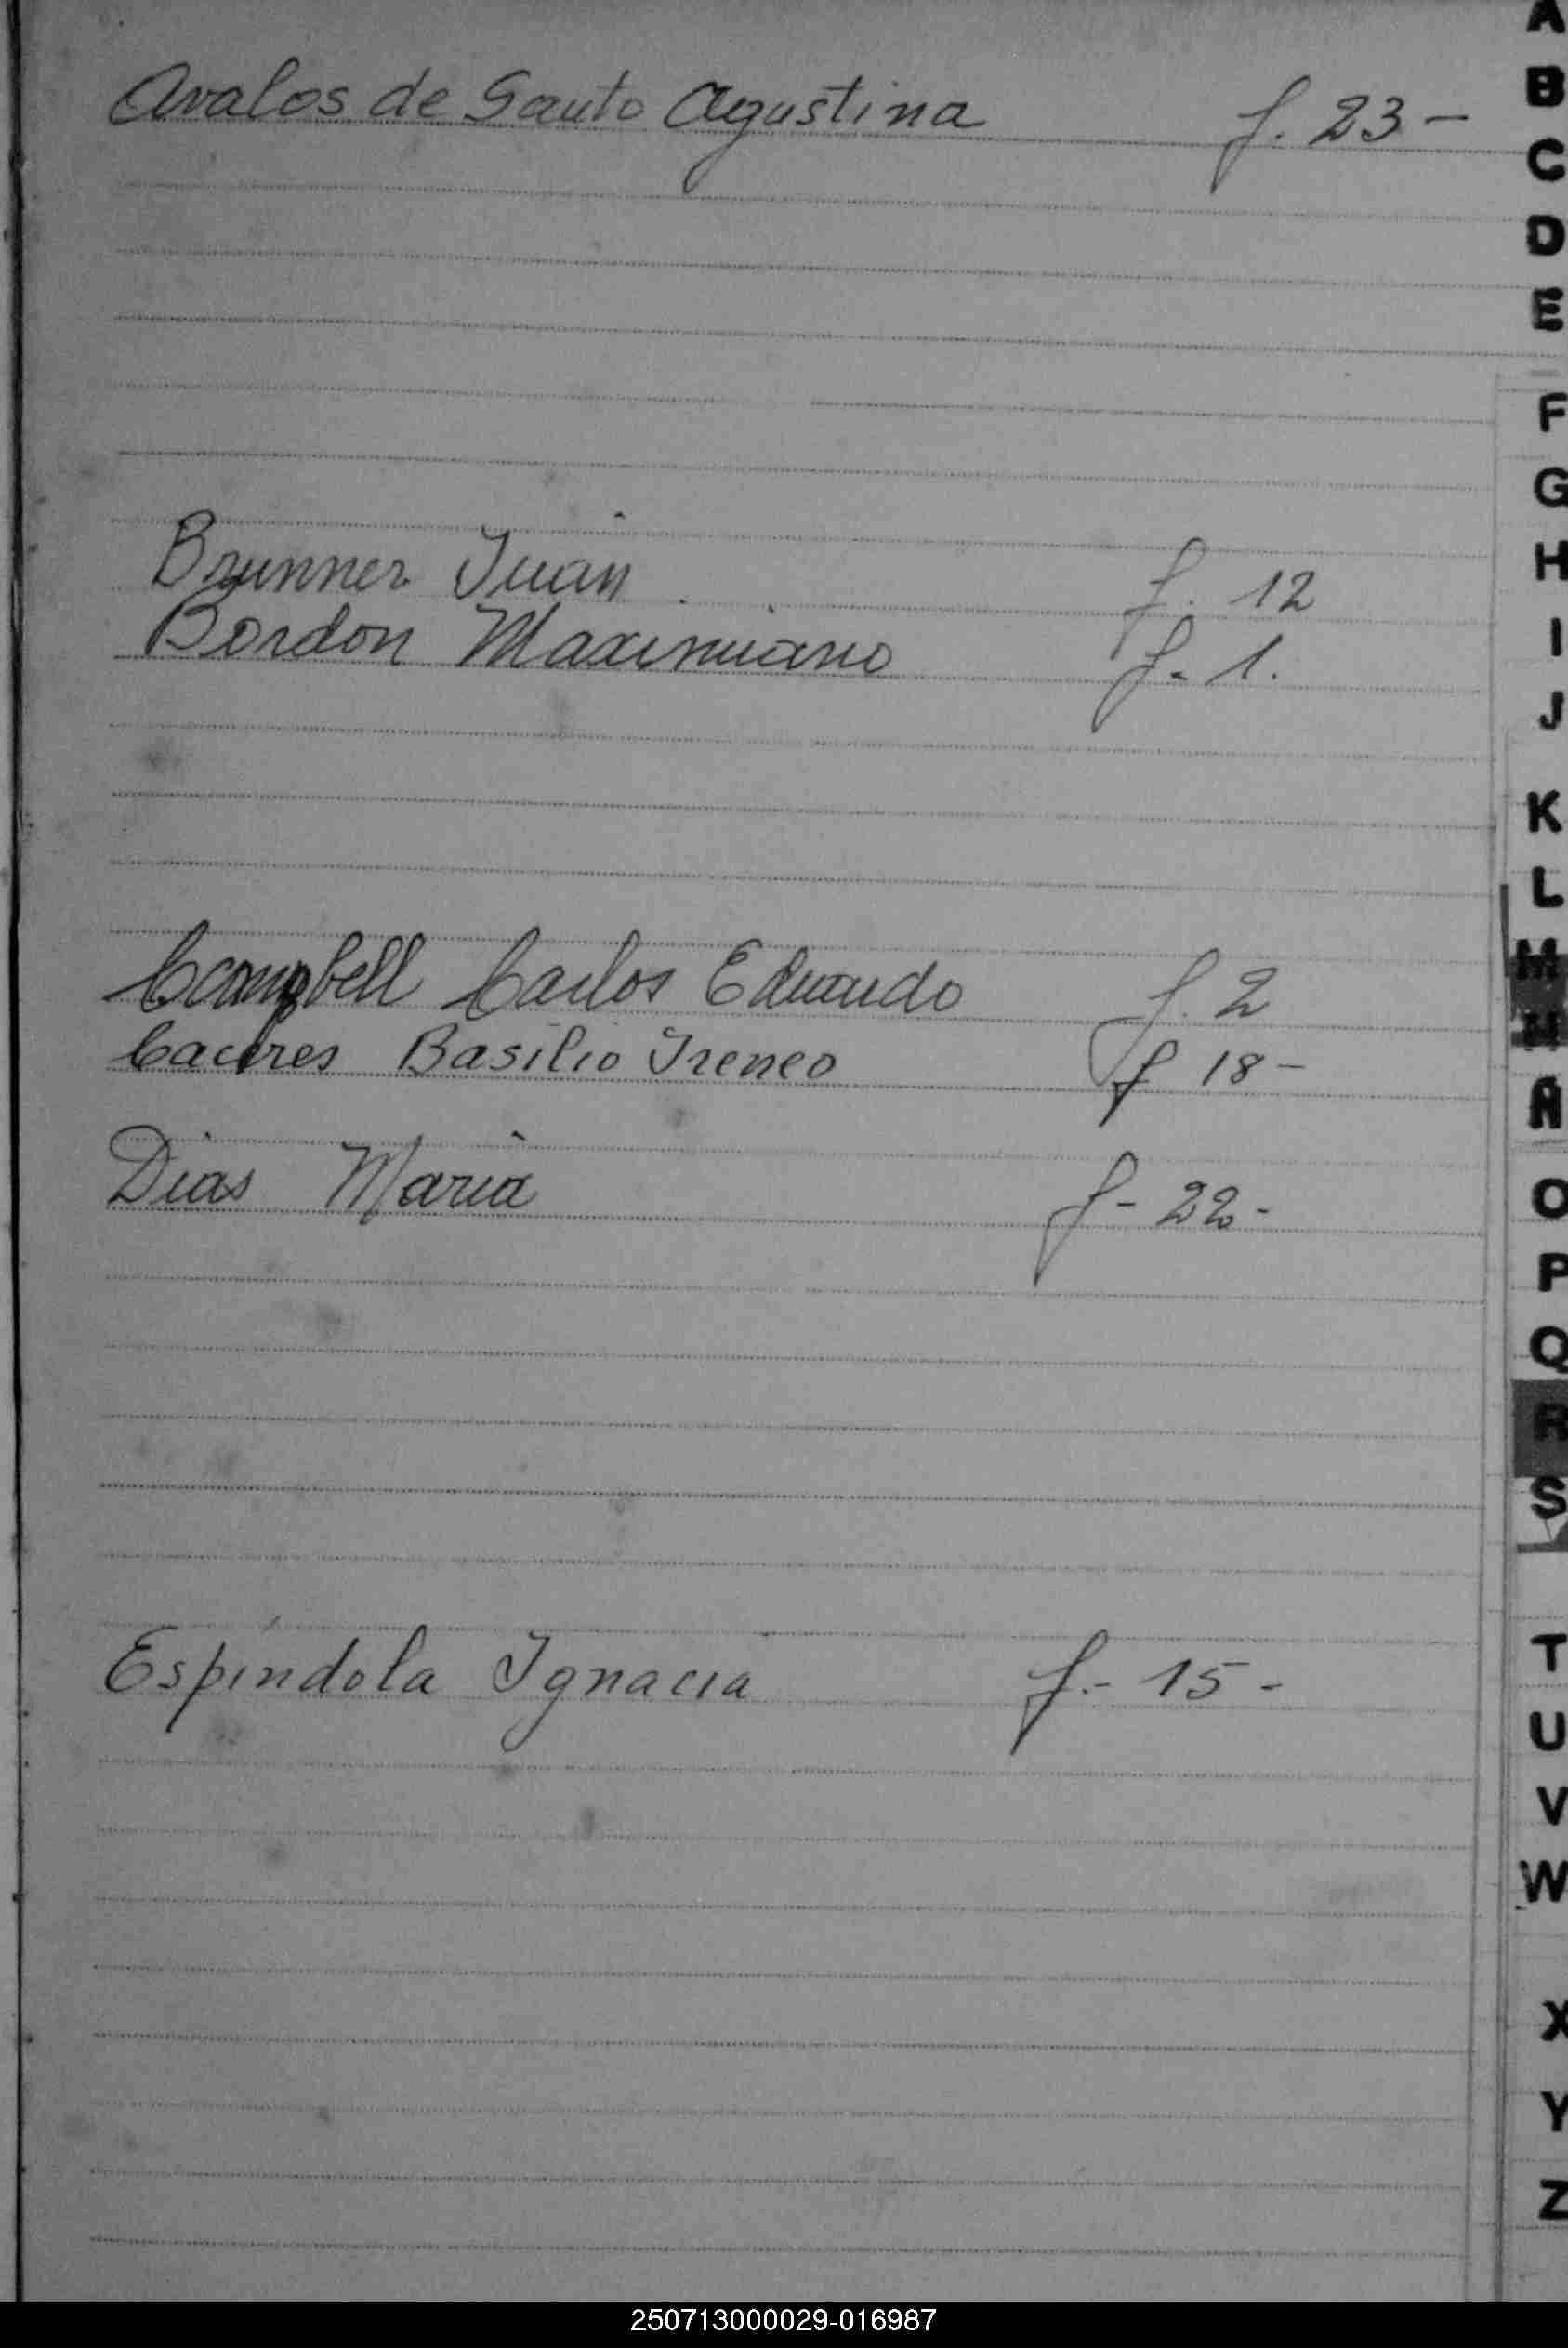 Avalos de Santo Agustina f. 23-
Brunner Juan f. 12
Bordon Maximiano f- 1.
Campbell Carlos Eduardo f. 2
Caceres Basilio Ireneo f 18-
Dias Maria f- 22-
Espíndola Ignacia f.- 15-
A
B
C
D
E
F
G
H
I
J
K
L
M
N
Ñ
O
P
Q
R
S
T
U
V
W
X
Y
Z
250713000029-016987